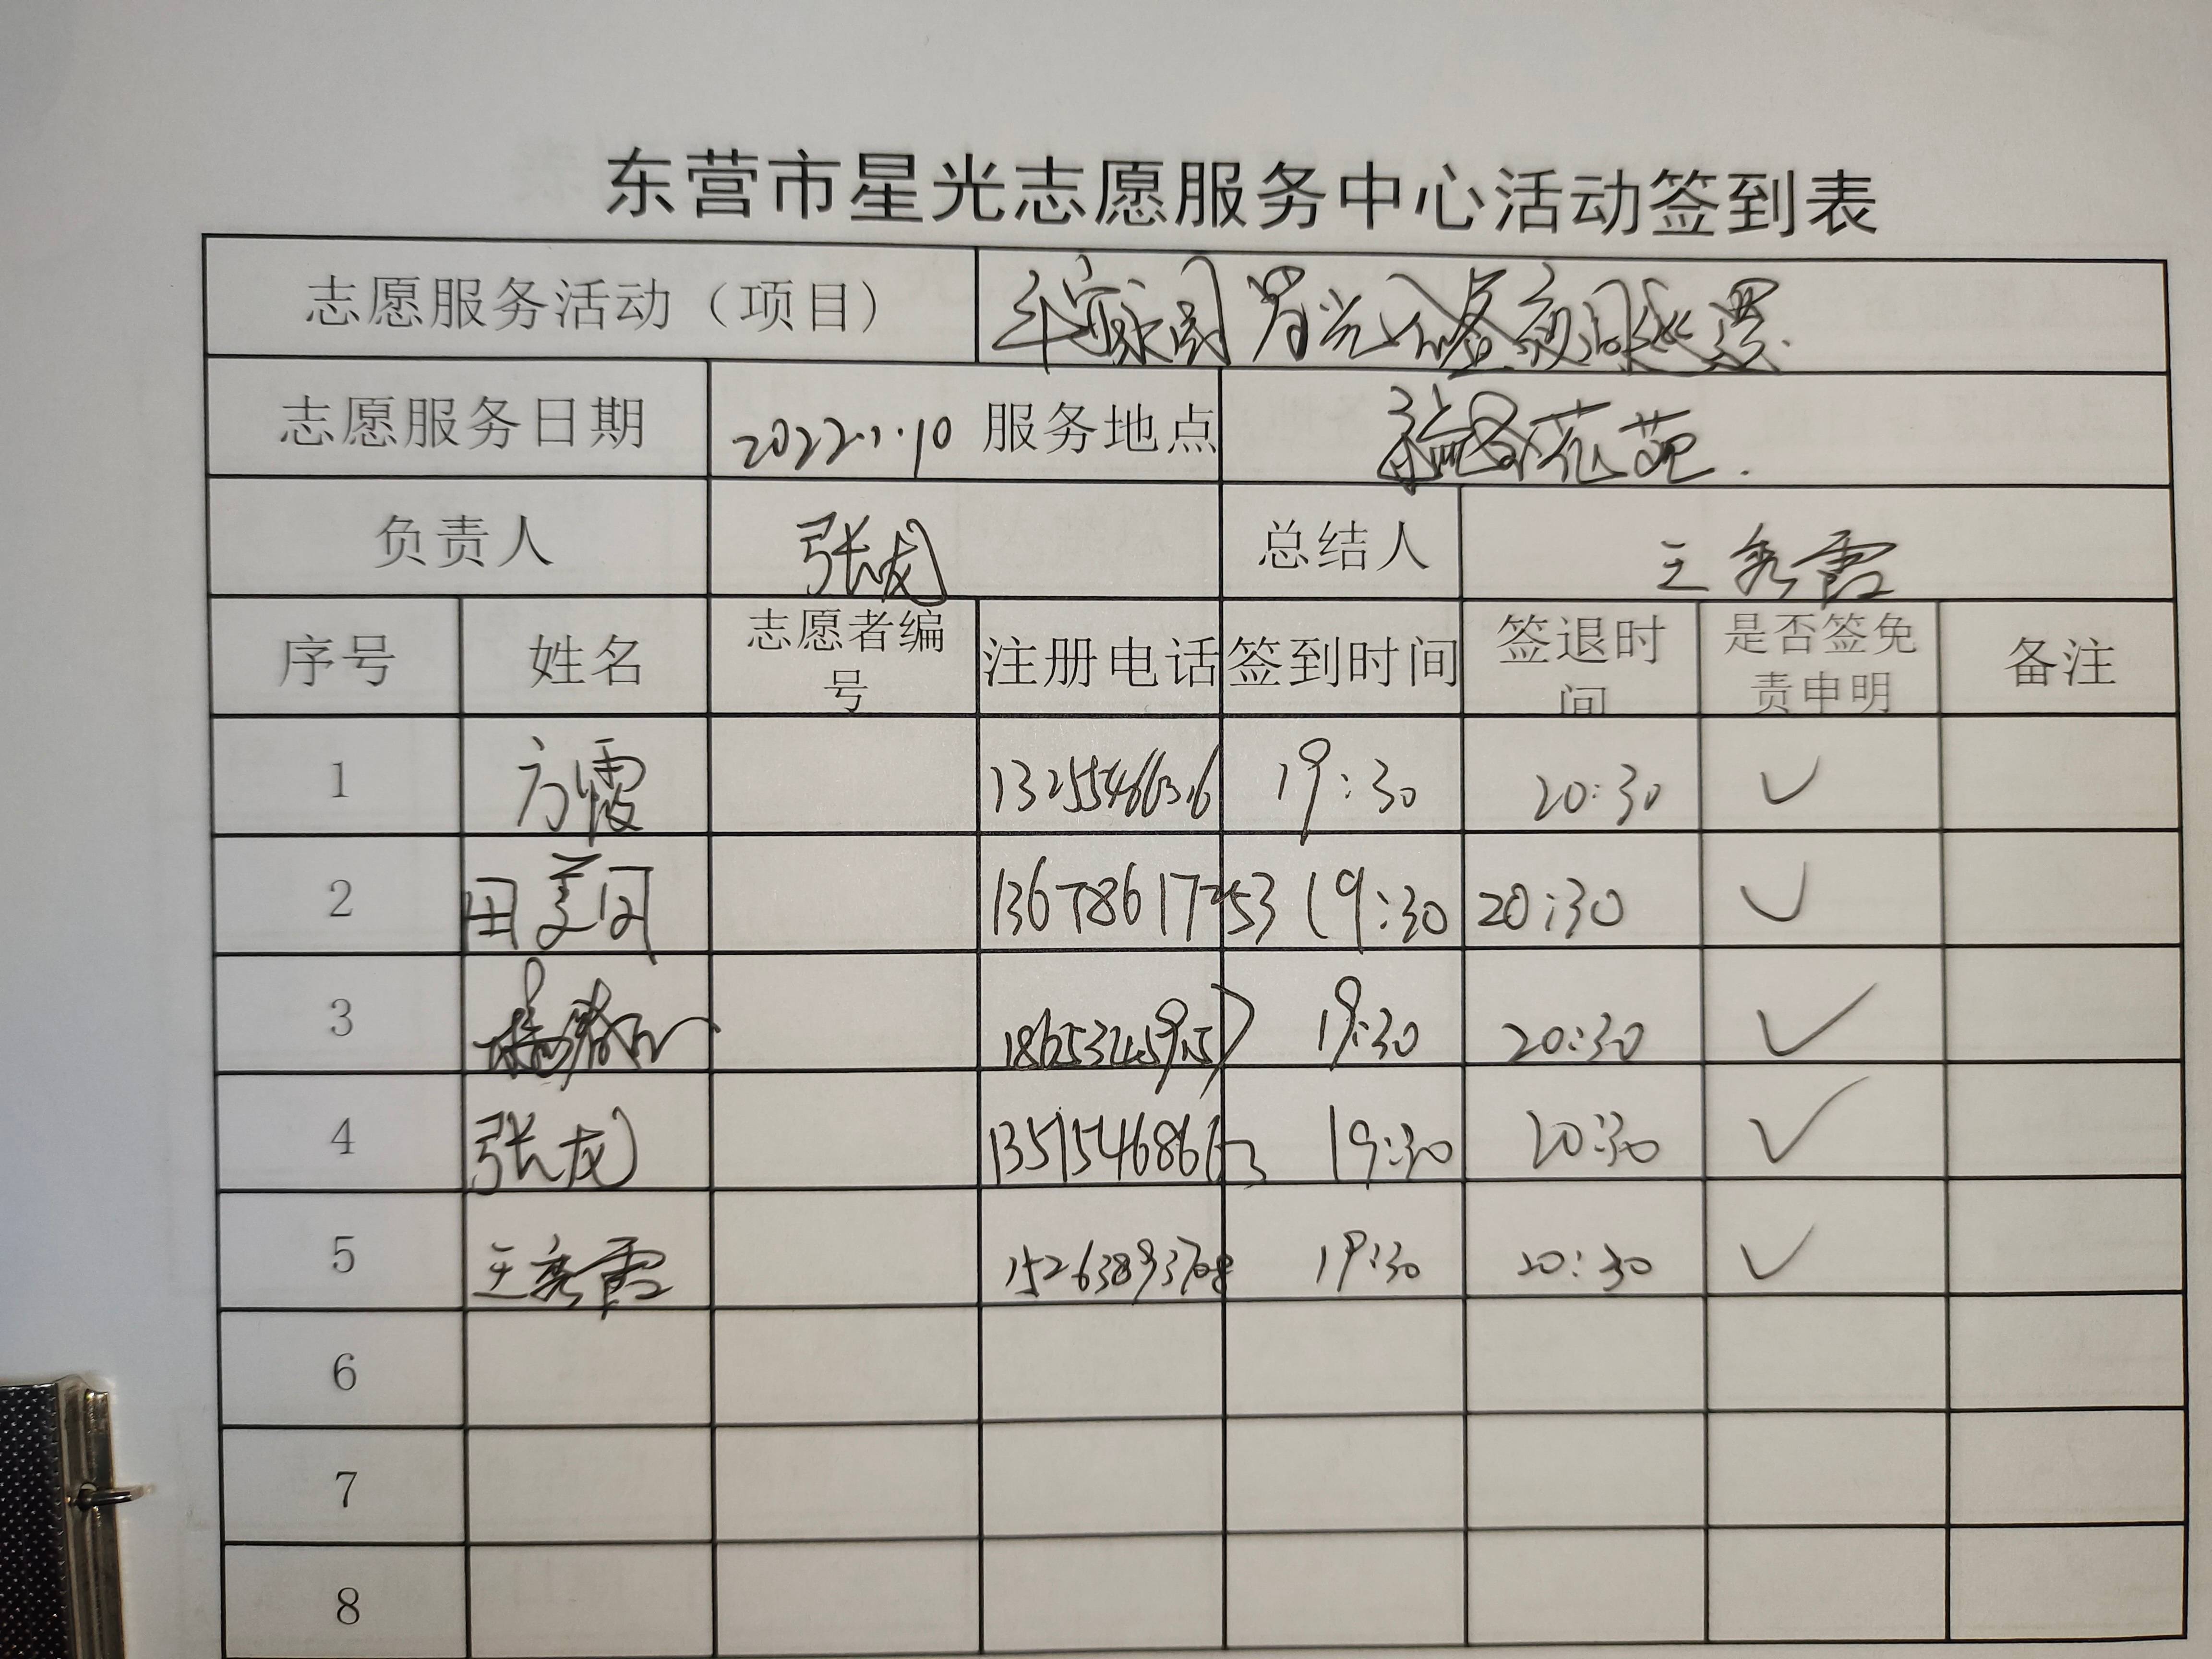 东营市星光志愿服务中心活动签到表
志愿服务活动（项目）
志愿服务日期 2022.1.10 服务地点 花苑.
负责人 张龙 总结人 王秀霞
序号 姓名 志愿者编号 注册电话 签到时间 签退时间 是否签免责申明 备注
1 方霞 19:30 20:30 ✓
2 田美闵 13678617253 19:30 20:30 ✓
3 19:30 20:30 ✓
4 张龙 13515468663 19:30 20:30 ✓
5 王秀霞 15263893708 19:30 20:30 ✓
6
7
8